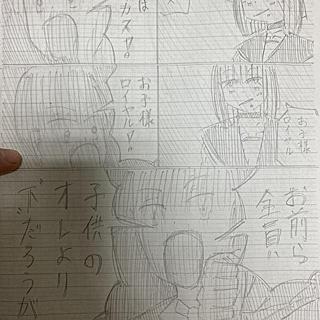 は
カス!!
お子様
ロイヤル
お子様
ロイヤル!!
お前ら
全員
子供の
オレより
下だろうが